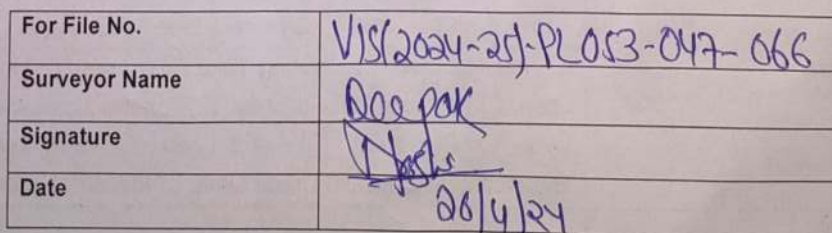 For File No. VIS(2024-25)-PL053-047-066
Surveyor Name Deepak
Signature
Date 26/4/24